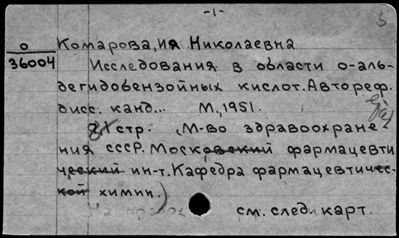 -1-
Комарова, Ия Николаевна
о
36004
Исследования в области о-аль-
дегидобензойных кислот. Автореф.
дисс. канд... М., 1951.
стр. (М-во здравоохране
ния СССР. Московский фармацевти
ческий ин-т. Кафедра фармацевтичес-
кой химии.)
см. след. карт.